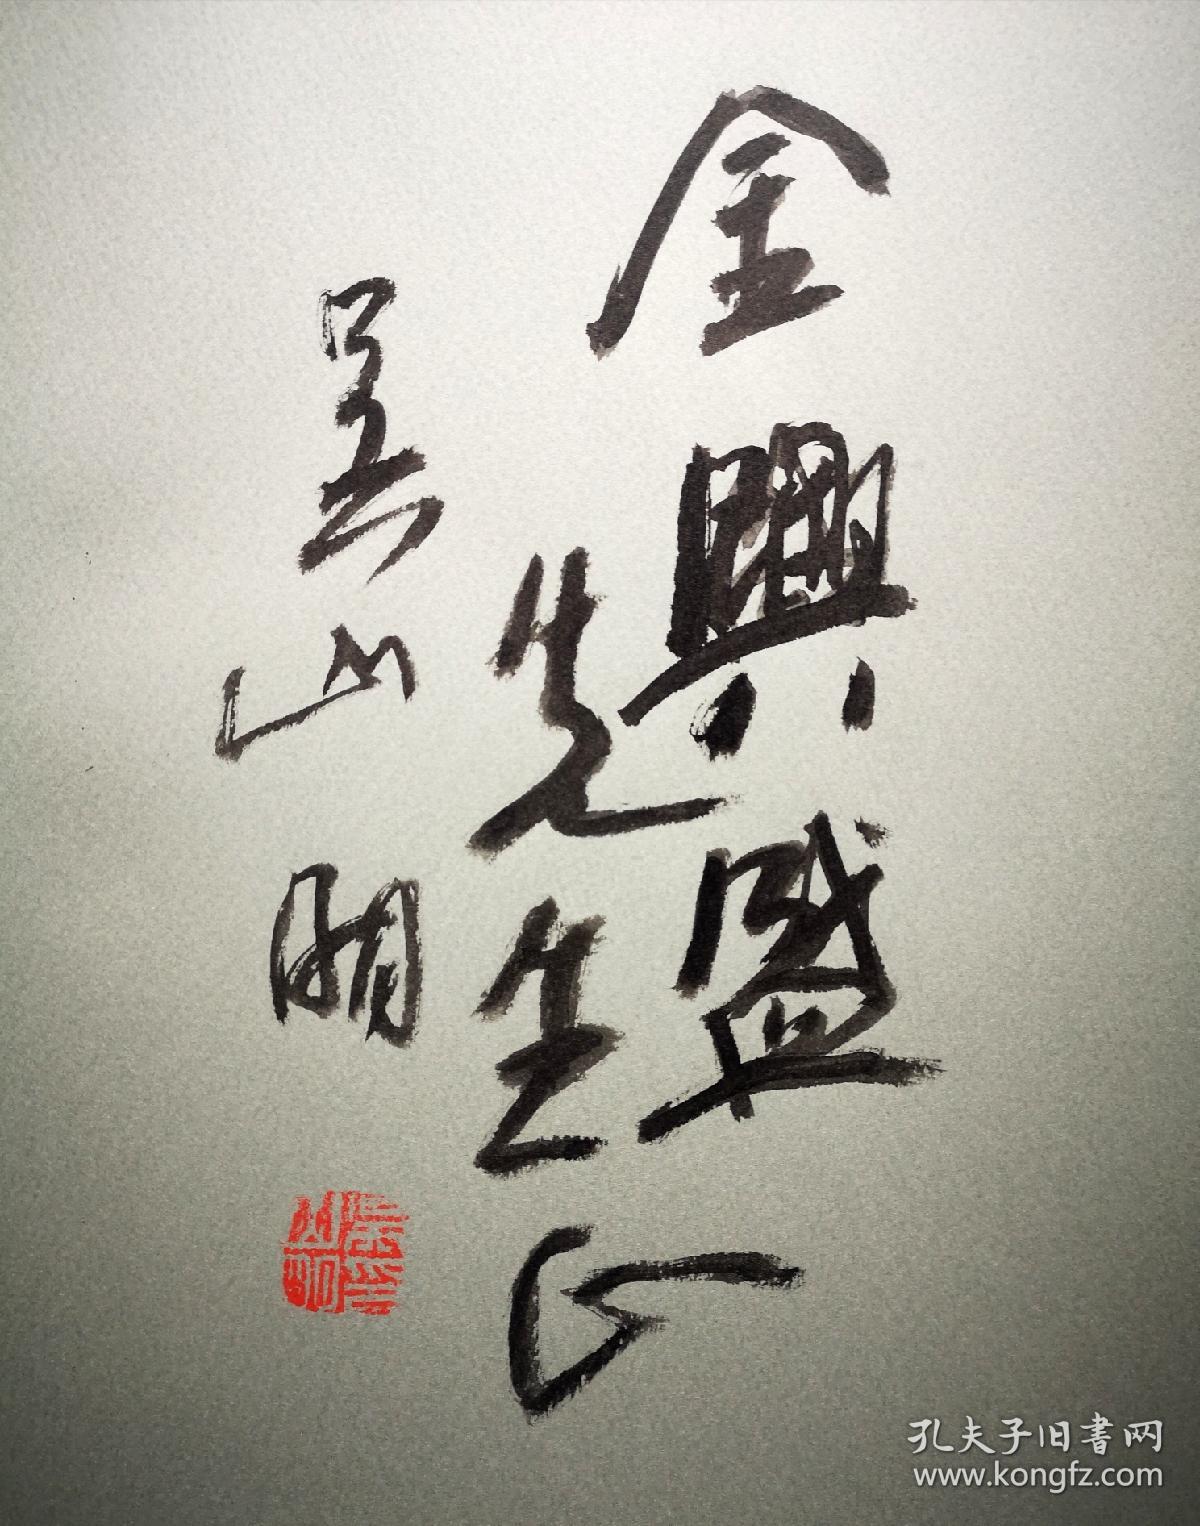 金興盛
先生正
吴山明
吴山明
孔夫子旧書网
www.kongfz.com